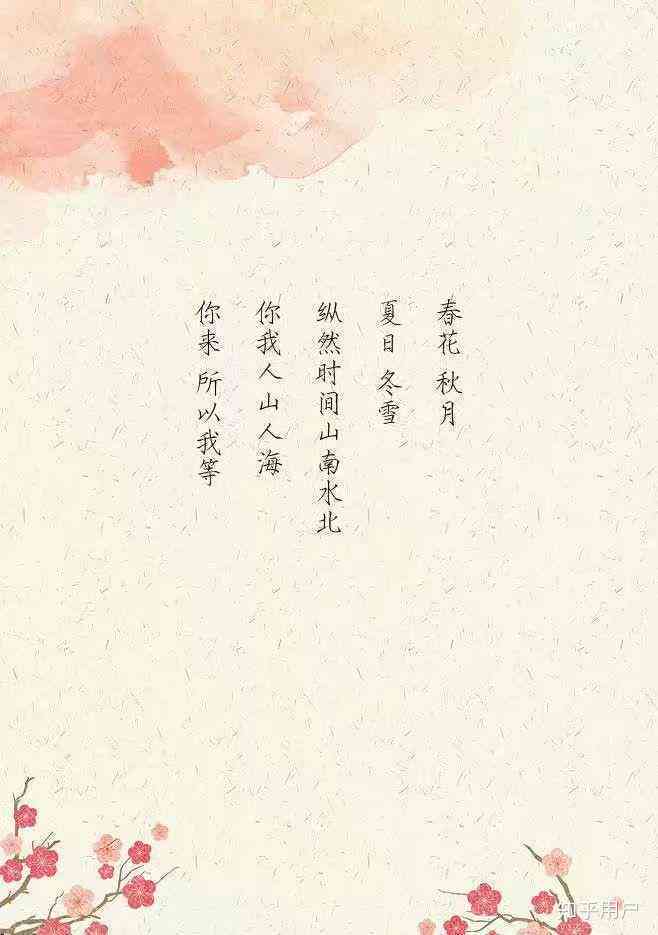 春花 秋月
夏日 冬雪
纵然时间山南水北
你我人山人海
你来 所以我等
知乎用户